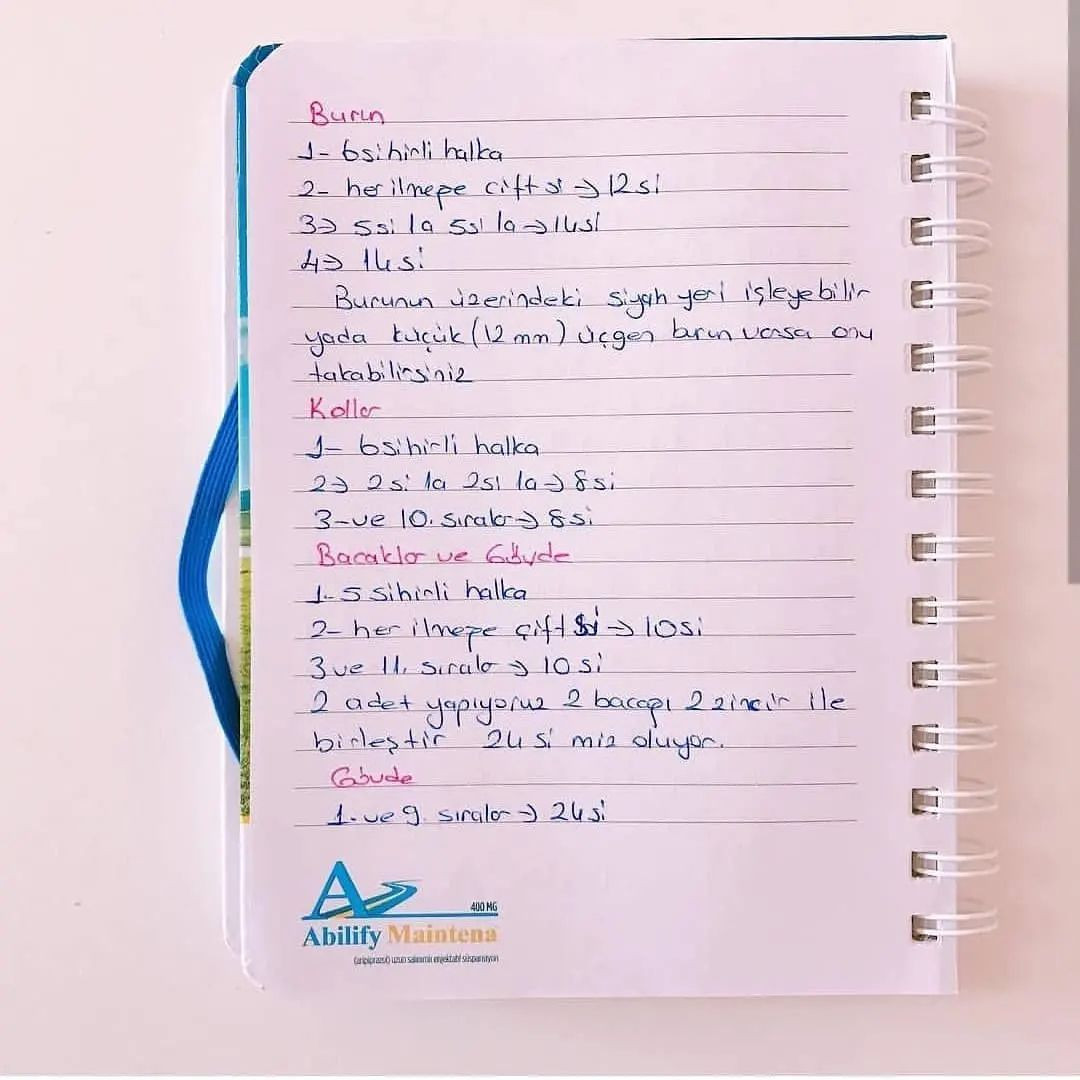 Burun
1- 6 sihirli halka
2- her ilmeğe çift si → 12 si
3→ 5si 1a 5si 1a → 14si
4→ 14si
Burunun üzerindeki siyah yeri işleyebilir
yada küçük (12 mm) üçgen burun varsa onu
takabilirsiniz
Kollar
1- 6 sihirli halka
2→ 2si 1a 2si 1a → 8si
3-ve 10. sıralar → 8si
Bacaklar ve Gövde
1- 5 sihirli halka
2- her ilmeğe çift si → 10si
3 ve 11. sıralar → 10 si
2 adet yapıyoruz 2 bacağı 2 zincir ile
birleştir 24 si miz oluyor.
Gövde
1. ve 9. sıralar → 24si
400 MG
Abilify Maintena
(aripiprazol) uzun salımımlı enjektabl süspansiyon